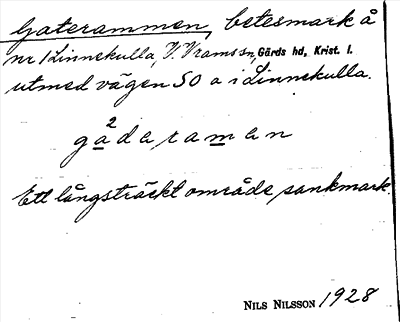 Gaterammen, betesmark å
nr 1 Linnekulla, V. Vramssn, Gärds hd, Krist. l.
utmed vägen SO a i Linnekulla.
2
gadaramen
Ett långsträckt område, sankmark.
NILS NILSSON 1928